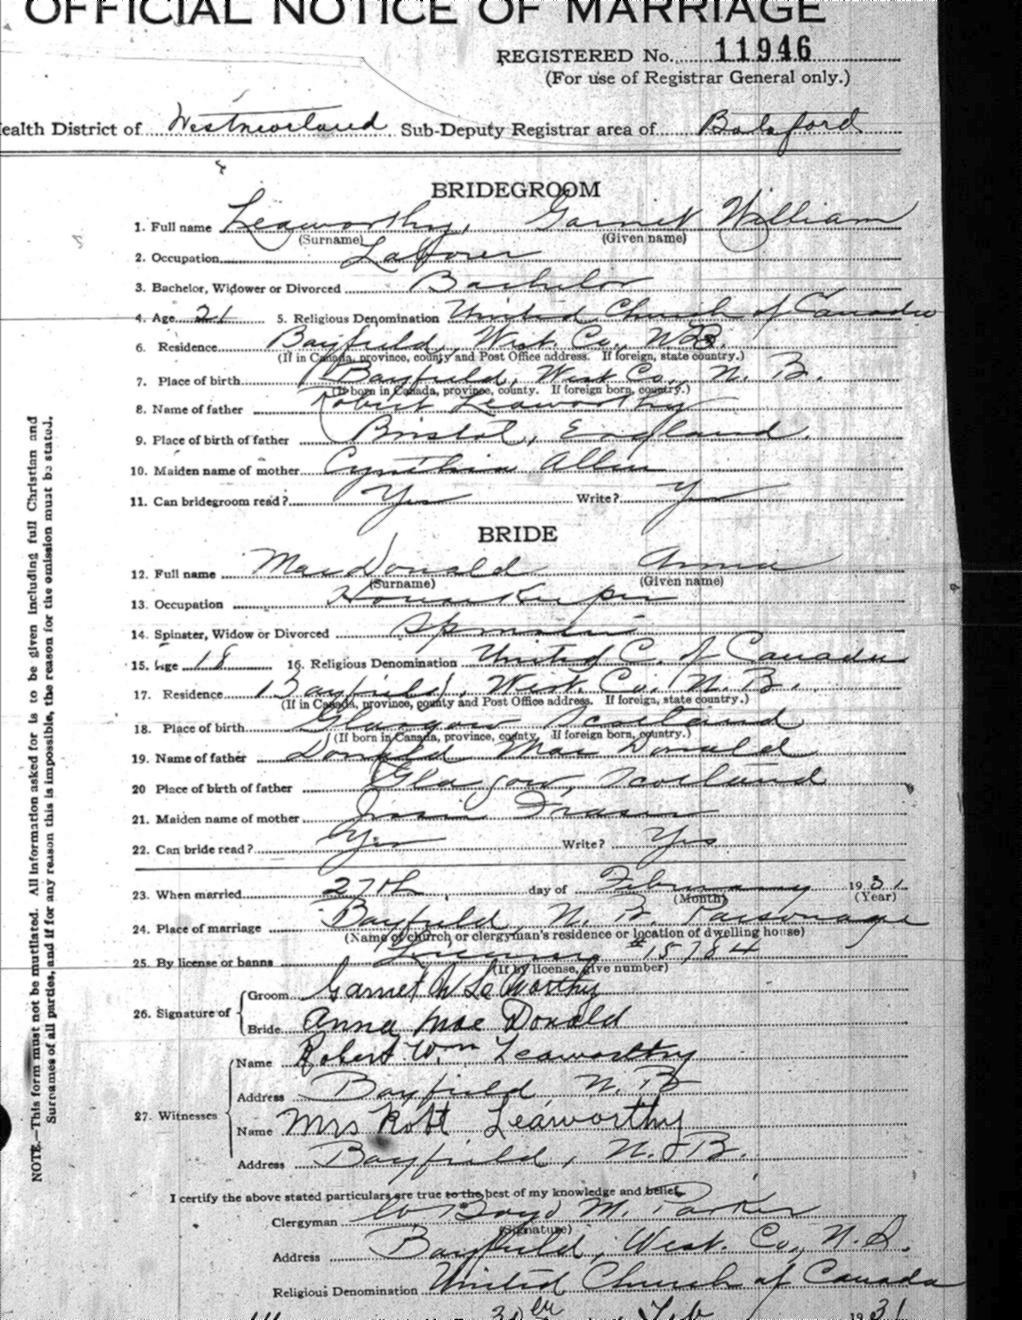 OFFICIAL NOTICE OF MARRIAGE
REGISTERED No. 11946
(For use of Registrar General only.)
ealth District of Westmorland Sub-Deputy Registrar area of Botsford
BRIDEGROOM
1. Full name Leaworthy, Garnet William
(Surname) (Given name)
2. Occupation Laborer
3. Bachelor, Widower or Divorced Bachelor
4. Age 21 5. Religious Denomination United Church of Canada
6. Residence Bayfield, West. Co., N.B.
(If in Canada, province, county and Post Office address. If foreign, state country.)
7. Place of birth Bayfield, West Co., N. B.
(If born in Canada, province, county. If foreign born, country.)
8. Name of father Robert Leaworthy
9. Place of birth of father Bristol, England.
10. Maiden name of mother Cynthia Allen
11. Can bridegroom read? Yes Write? Yes
BRIDE
12. Full name MacDonald Anna
(Surname) (Given name)
13. Occupation Housekeeper
14. Spinster, Widow or Divorced Spinster
15. Age 18 16. Religious Denomination United C. of Canada
17. Residence Bayfield, West. Co., N. B.
(If in Canada, province, county and Post Office address. If foreign, state country.)
18. Place of birth Glasgow Scotland
(If born in Canada, province, county. If foreign born, country.)
19. Name of father Donald MacDonald
20 Place of birth of father Glasgow, Scotland
21. Maiden name of mother Jessie Fraser
22. Can bride read? Yes Write? Yes
23. When married 27th day of February 1931
(Month) (Year)
24. Place of marriage Bayfield, N. B. Parsonage
(Name of church or clergyman's residence or location of dwelling house)
25. By license or banns License #15784
(If by license, give number)
26. Signature of
Groom Garnet W Leaworthy
Bride Anna Mae Donald
27. Witnesses
Name Robert Wm Leaworthy
Address Bayfield N. B
Name Mrs Robt Leaworthy
Address Bayfield, N. B.
I certify the above stated particulars are true to the best of my knowledge and belief.
Clergyman Boyd M. Parker
(Signature)
Address Bayfield, West. Co., N.B.
Religious Denomination United Church of Canada
Feb 1931
NOTE.—This form must not be mutilated. All information asked for is to be given including full Christian and
Surnames of all parties, and if for any reason this is impossible, the reason for the omission must be stated.